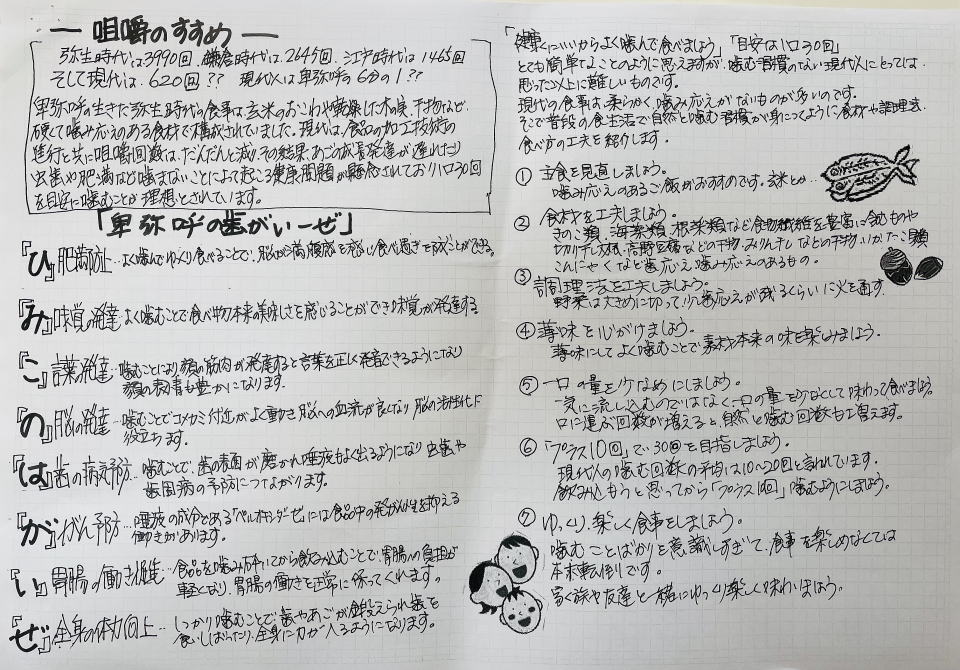 ― 咀嚼のすすめ ―
弥生時代は3990回 鎌倉時代は2645回 江戸時代は1465回
そして現代は、620回?? 現代人は卑弥呼の6分の1??
卑弥呼の生きた弥生時代の食事は玄米のおこわや乾燥した木の実、干物など、
硬くて噛み応えのある食材で構成されていました。現代は、食品の加工技術の
進行と共に咀嚼回数は、だんだんと減り、その結果、あごの成長発達が遅れたり
虫歯や肥満など噛まないことによって起こる健康問題が懸念されており1口30回
を目安に噛むことが理想とされています。
「卑弥呼の歯がいーぜ」
『ひ』肥満防止…よく噛んでゆっくり食べることで、脳が満腹感を感じ食べ過ぎを防ぐことができる。
『み』味覚の発達…よく噛むことで食べ物本来の美味しさを感じることができ味覚が発達する
『こ』言葉の発達…噛むことにより顔の筋肉が発達すると言葉を正しく発音できるようになり
顔の表情も豊かになります。
『の』脳の発達…噛むことでコメカミ付近がよく動き脳への血流が良くなり脳の活性化に
役立ちます。
『は』歯の病気予防…噛むことで、歯の表面が磨かれ唾液もよく出るようになり虫歯や
歯周病の予防につながります。
『が』がん予防…唾液の成分である「ペルオキシダーゼ」には食品中の発がん性を抑える
働きがあります。
『い』胃腸の働き促進…食品を噛み砕いてから飲み込むことで、胃腸への負担が
軽くなり、胃腸の働きを正常に保ってくれます。
『ぜ』全身の体力向上…しっかり噛むことで歯やあごが鍛えられ歯を
食いしばったり、全身に力が入るようになります。
「健康にいいからよく噛んで食べましょう」「目安は1口30回」
とても簡単なことのように思えますが、噛む習慣のない現代人にとっては、
思った以上に難しいものです。
現代の食事は、柔らかく、噛み応えがないものが多いのです。
そこで普段の食生活で自然と噛む習慣が身につくように食材や調理法、
食べ方の工夫を紹介します。
① 主食を見直しましょう。
噛み応えのあるご飯がおすすめです。玄米とか…
② 食材を工夫しましょう。
きのこ類、海藻類、根菜類など食物繊維を豊富に含むものや
切り干し大根、高野豆腐などの干物、みりん干しなどの干物、いか、たこ、貝類
こんにゃくなど歯応え、噛み応えのあるもの。
③ 調理法を工夫しましょう。
野菜は大きめに切って少し歯応えが残るくらいに火を通す。
④ 薄味を心がけましょう。
薄味にしてよく噛むことで素材本来の味を楽しみましょう。
⑤ 一口の量を少なめにしましょう。
一気に流し込むのではなく、一口の量を少なくして味わって食べましょう
口に運ぶ回数が増えると、自然と噛む回数も増えます。
⑥ 「プラス10回」で、30回を目指しましょう。
現代人の噛む回数の平均は10〜20回と言われています。
飲み込もうと思ってから「プラス10回」噛むようにしましょう。
⑦ ゆっくり、楽しく食事をしましょう。
噛むことばかりを意識しすぎて、食事を楽しめなくては
本末転倒です。
家族や友達と一緒にゆっくり楽しく味わいましょう。